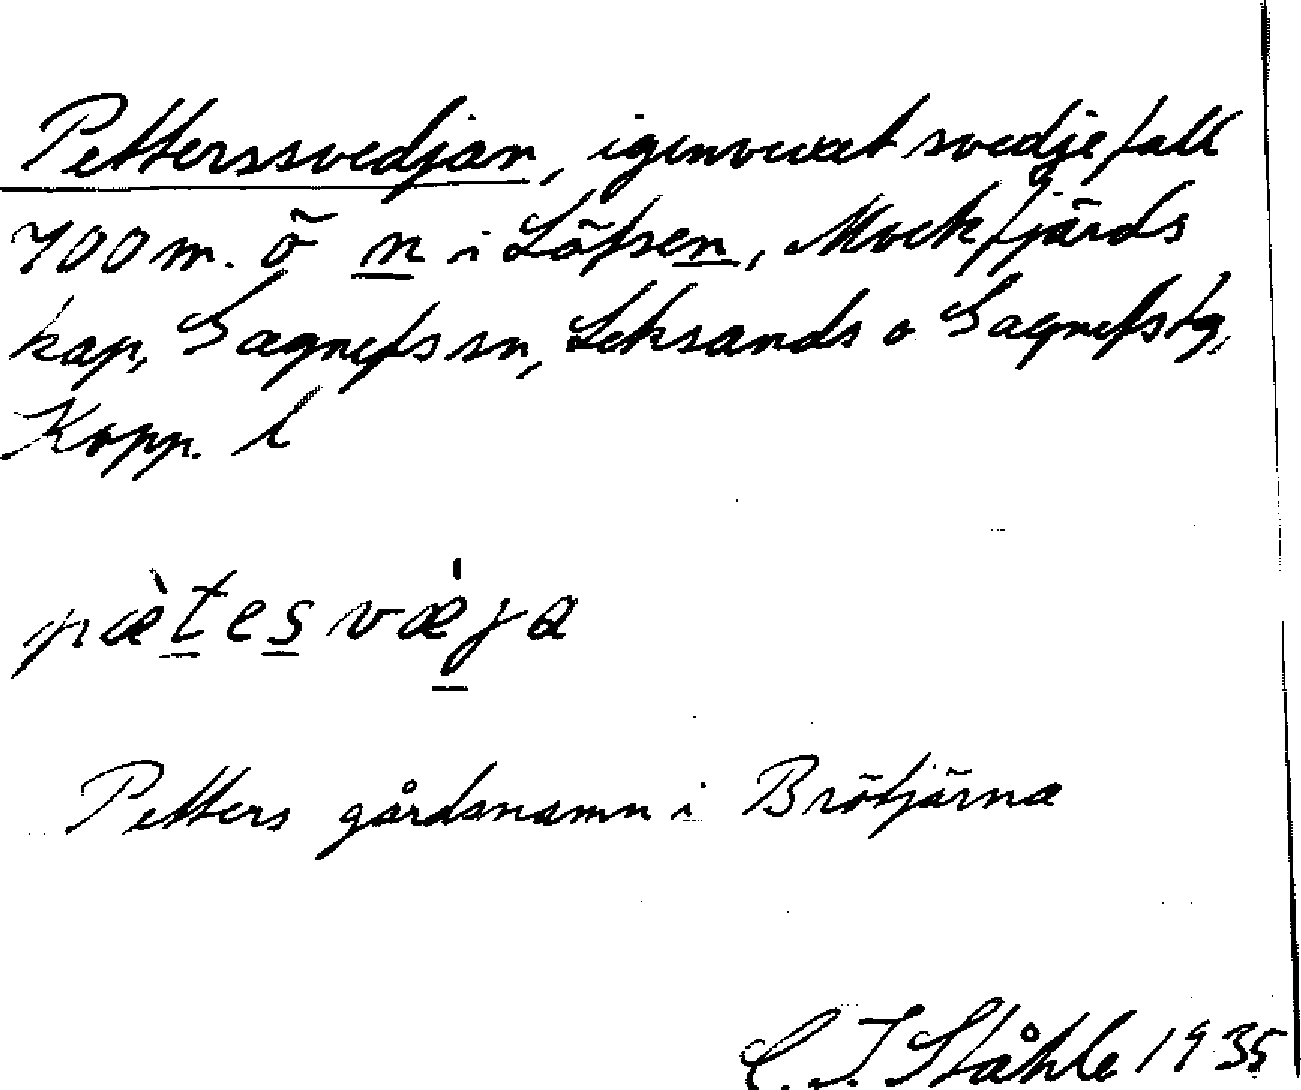 Petterssvedjan, igenvuxet svedjefall
700 m. ö n i Löfsen, Mockfjärds
kap, Gagnefs sn, Leksands o Gagnefs tg,
Kopp. l
pæ̀tesvæ̍ja
Petters gårdsnamn i Brötjärna
C. I. Ståhle 1935